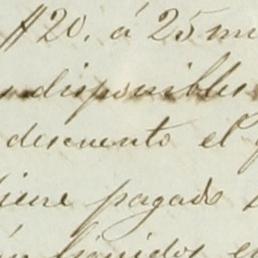 $20. á 25 mi
s disponibles
descuento el f
tiene pagado s
ún liquidos e